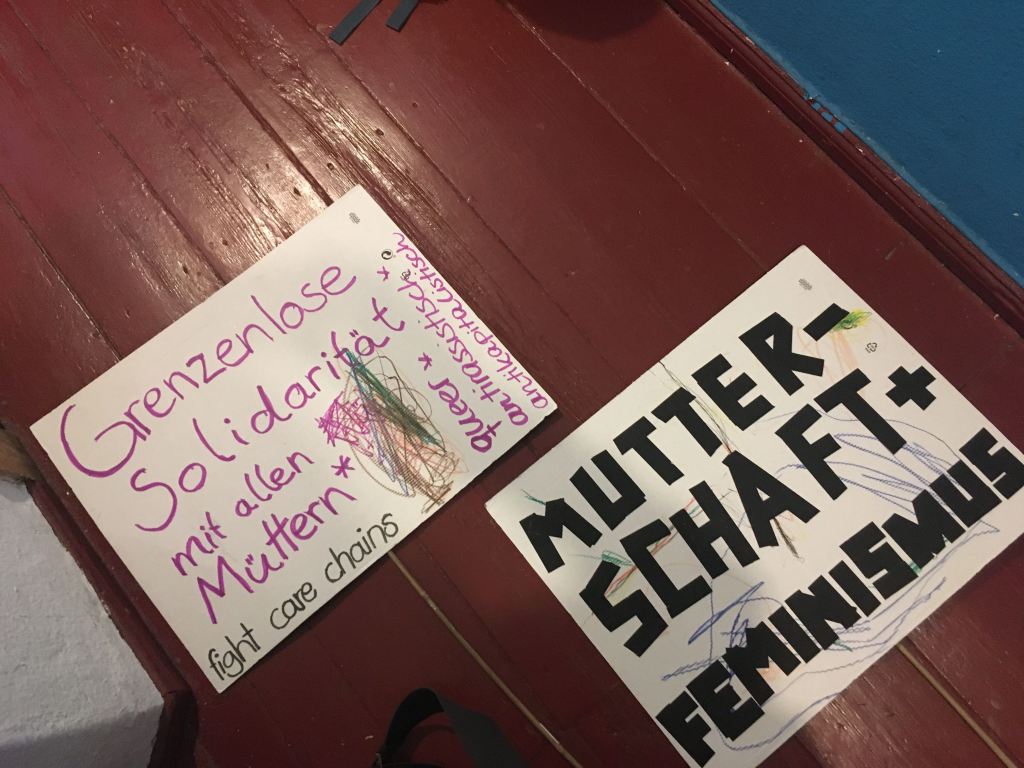 Grenzenlose
Solidarität
mit allen
Müttern*
fight care chains
queer *
antirassistisch *
antikapitalistisch
MUTTER-
SCHAFT +
FEMINISMUS